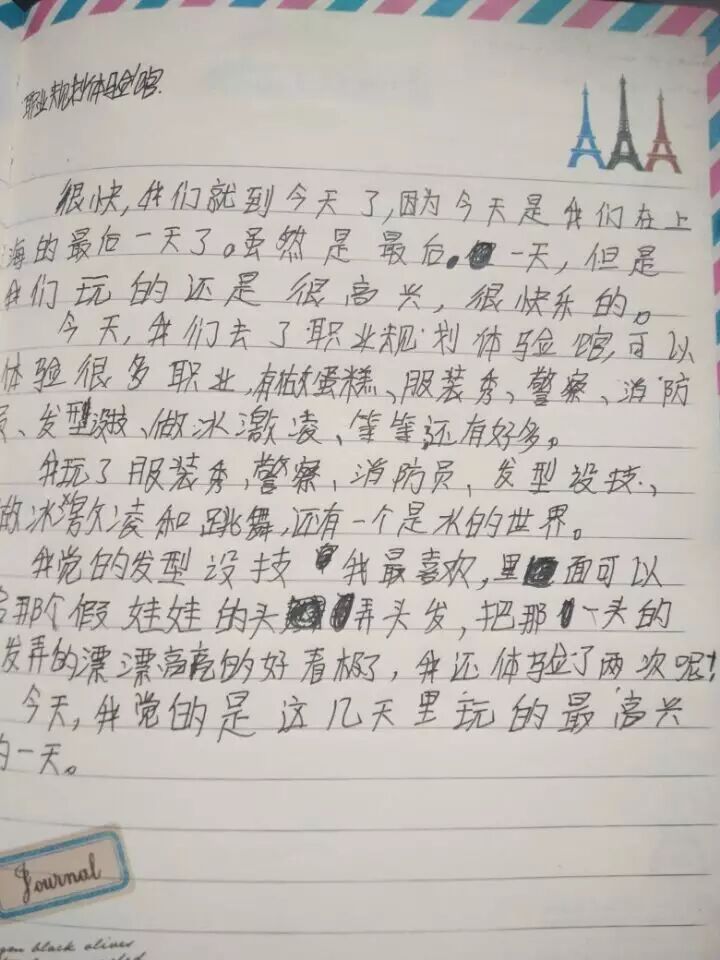 职业规划体验馆.
很快,我们就到今天了,因为今天是我们在上
海的最后一天了。虽然是最后。一天,但是
我们玩的还是很高兴,很快乐的。
今天,我们去了职业规划体验馆,可以
体验很多职业,有做蛋糕、服装秀、警察、消防
员、发型设技、做冰激凌、等等,还有好多。
我玩了服装秀,警察、消防员、发型设技、
做冰激凌和跳舞,还有一个是水的世界。
我觉的发型设技我最喜欢,里面可以
给那个假娃娃的头弄头发,把那一头的
发弄的漂漂亮亮的好看极了,我还体验了两次呢!
今天,我觉的是这几天里玩的最高兴
的一天。
Journal
black olives